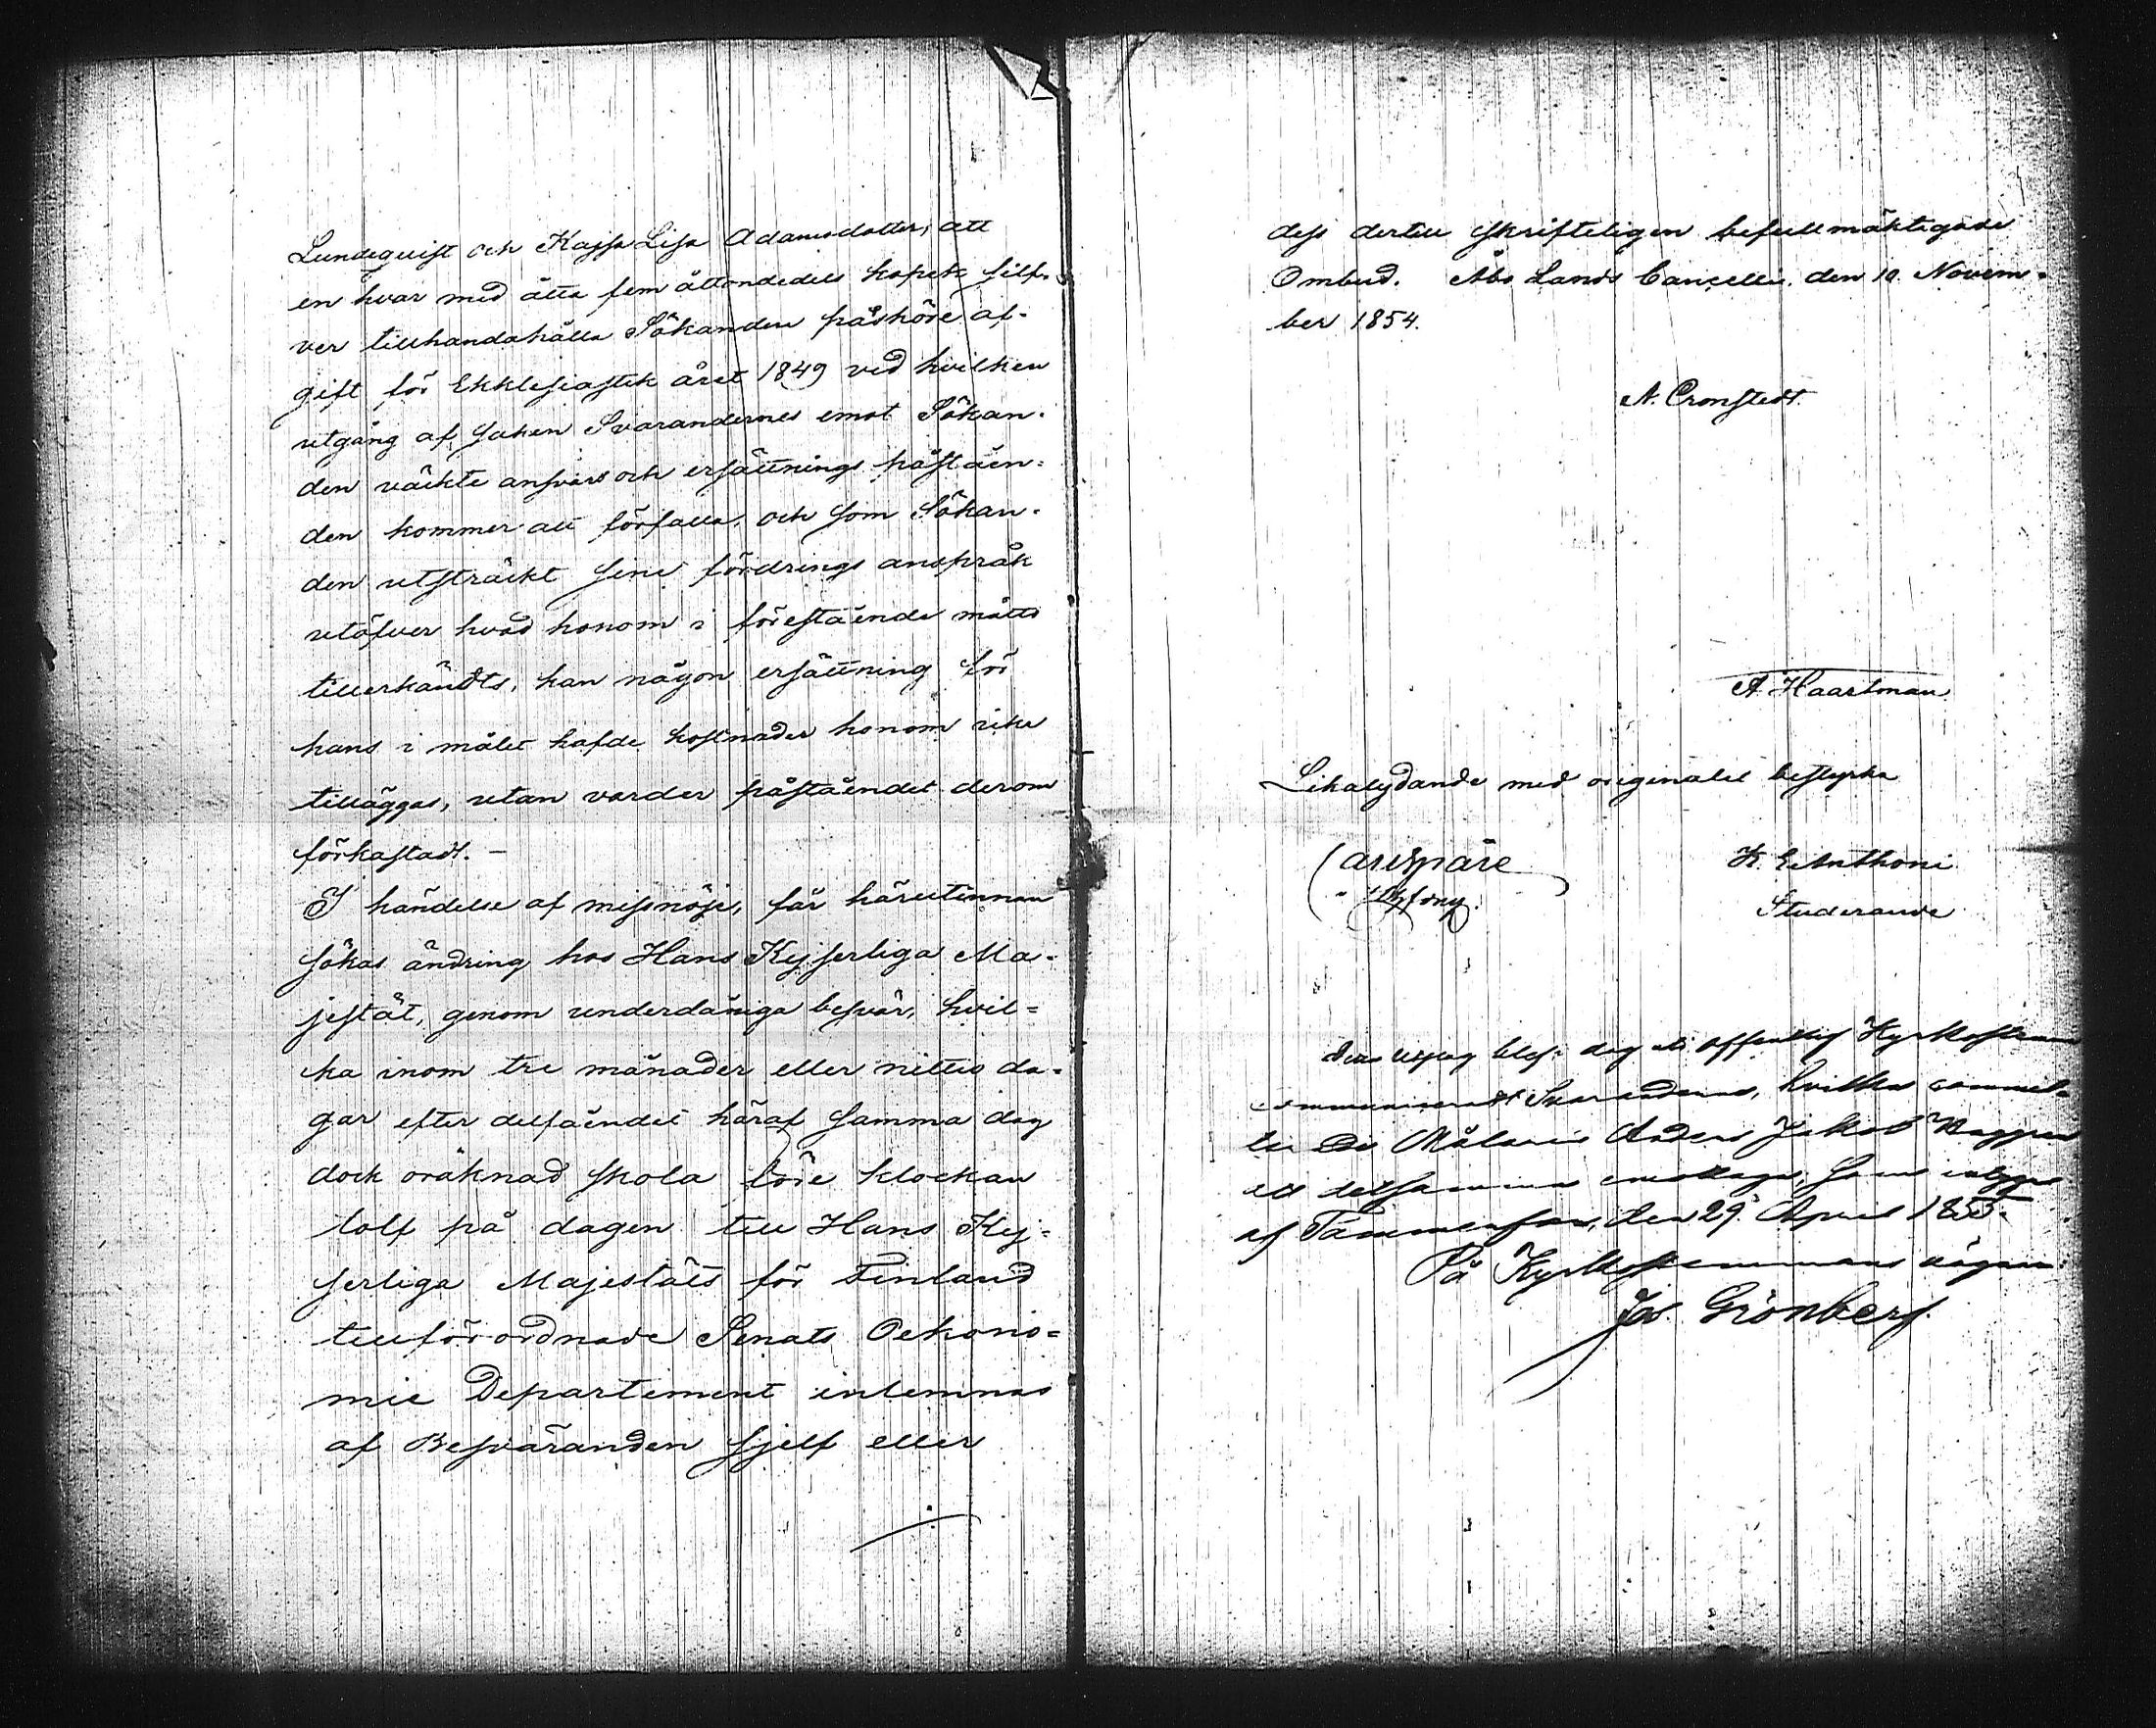 Lundequist och Kajsa Lisa Adamsdotter, att
en hvar med åtta fem åttondedels kopek silf-
ver tillhandahålla Sökanden påsköre af-
gift för Ekklesiastik året 1849 ved hvilken
utgång af saken Svarandernes emot Sökan-
den väckte ansvars och ersättnings påståen-
den kommer att förfalla, och som Sökan-
den utsträckt sine fordrings anspråk
utöfver hvad honom i förestående måtto
tillerkändts, kan någon ersättning för
hans i målet hafde kostnader honom icke
tilläggas, utan varder påståendet derom
förkastadt. -
I händelse af missnöje, får härutinnan
sökas ändring hos Hans Kejserliga Ma-
jestät, genom underdåniga besvär, hvil-
ka inom tre månader eller nittio da-
gar efter delfåendet häraf samma dag
dock oräknad skola före klockan
tolf på dagen till Hans Kej-
serliga Majestäts för Finland
tillförordnade Senats Oekono-
mie Departement inlemnas
af Besväranden sjelf eller
dess dertill skrifteligen befullmäktigade
Ombud. Åbo Lands Cancellie den 10 Novem-
ber 1854.
A. Cronstedt.
A Haartman
Likalydande med originalet bestyrka
K. E Anthoni
Studerande
dag uti offentlig Kyrkostämma
communicerat Svaranderne, hvilka
Målaren Anders Jakob
detsamma emottaga, som intygas
af Tammensaari, den 29 April 1855.
På Kyrkostemmans vägnar:
Jos. Grönberg.